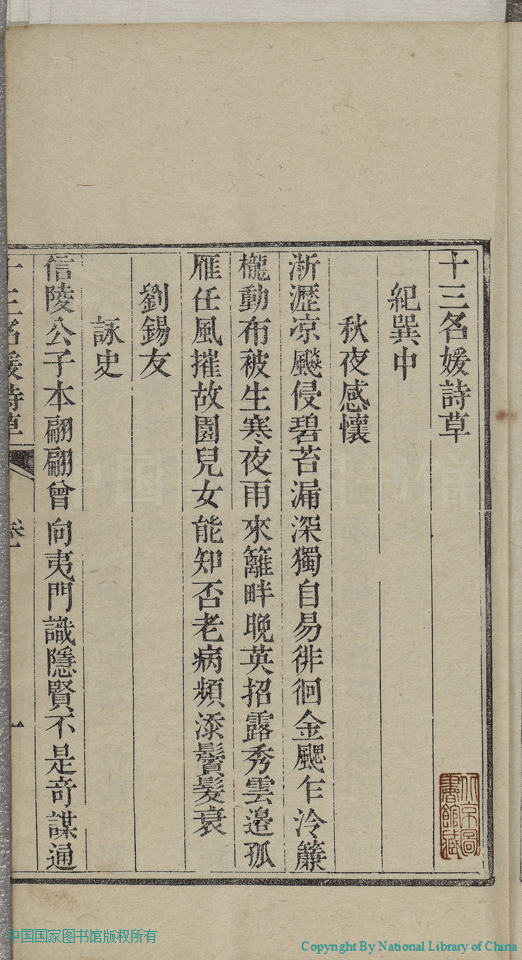 十三名媛詩草
紀巽中
秋夜感懷
淅瀝凉飈侵碧苔漏深獨自易徘徊金颸乍冷簾
櫳動布被生寒夜雨來籬畔晚英招露秀雲邉孤
雁任風摧故園兒女能知否老病頻添鬢髮衰
劉錫友
詠史
信陵公子本翩翩曾向夷門識隱賢不是竒謀通
十三名媛詩草
卷一
一
北京圖書館藏
中国国家图书馆版权所有
Copyright By National Library of China